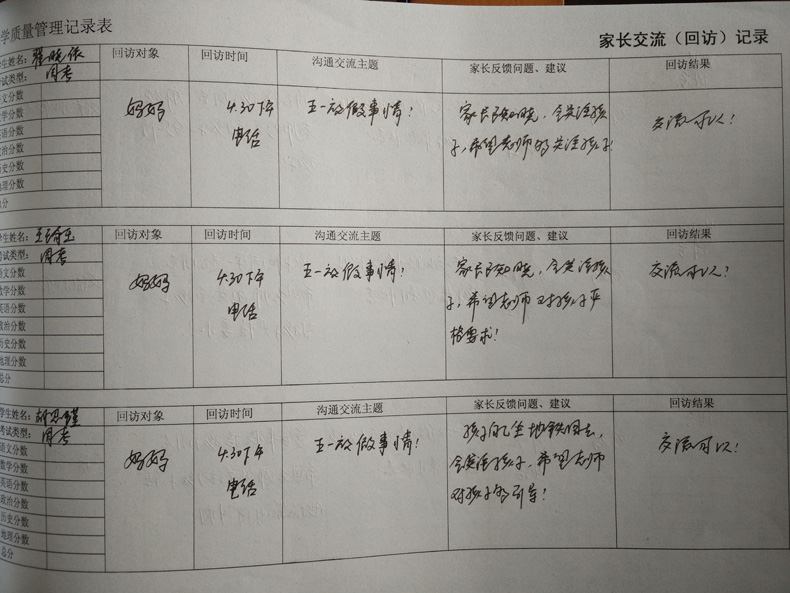 学质量管理记录表
家长交流（回访）记录
学生姓名：
回访对象 回访时间 沟通交流主题 家长反馈问题、建议 回访结果
考试类型：周考
语文分数
数学分数
英语分数
政治分数
历史分数
地理分数
总分
妈妈
4.30下午
电话
五一放假事情！
家长已知晓，会关注孩
子，希望老师多关注孩子！
交流可以！
学生姓名：
回访对象 回访时间 沟通交流主题 家长反馈问题、建议 回访结果
考试类型：周考
语文分数
数学分数
英语分数
政治分数
历史分数
地理分数
总分
妈妈
4.30下午
电话
五一放假事情！
家长已知晓，会关注孩
子，希望老师对孩子严
格要求！
交流可以！
学生姓名：胡思瑾
回访对象 回访时间 沟通交流主题 家长反馈问题、建议 回访结果
考试类型：周考
语文分数
数学分数
英语分数
政治分数
历史分数
地理分数
总分
妈妈
4.30下午
电话
五一放假事情！
孩子自己坐地铁回去，
会关注孩子，希望老师
对孩子多引导！
交流可以！